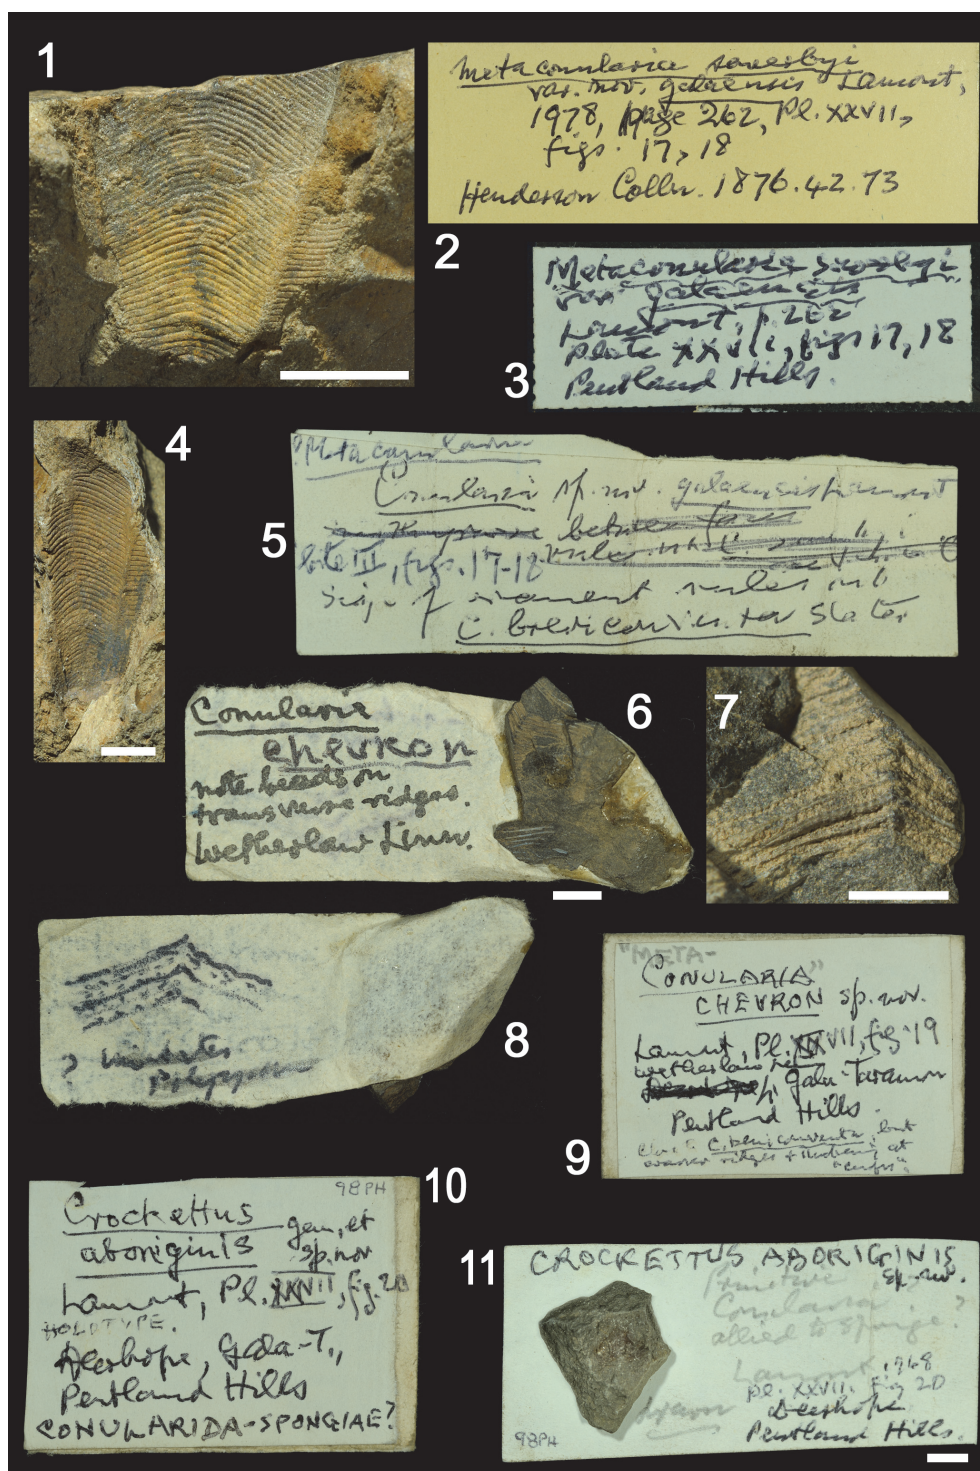 1
Metaconularia sowerbyi
var. nov. galaensis Lamont,
1978, page 262, Pl. XXVII,
figs. 17, 18
Henderson Colln. 1876.42.73
2
Metaconularia sowerbyi
var galaensis
Lamont, p. 262
Plate XXVII, figs 17, 18
Pentland Hills.
3
4
?Metaconularia
Conularia sp. nov. galaensis Lamont
between faces
III, figs. 17-18
5
Conularia
chevron
note beads on
transverse ridges.
Wetherlaw Linn.
6
7
?
8
"META-
CONULARIA"
CHEVRON sp. nov.
Lamont, Pl. XXVII, fig. 19
Wetherlaw
Gala-Tarannon
Pentland Hills.
9
98PH
10
Crockettus
aboriginis gen. et
sp. nov
Lamont, Pl. XXVII, fig. 20
HOLOTYPE.
Deerhope, Gala-T.,
Pentland Hills
CONULARIDA-SPONGIAE?
11
CROCKETTUS ABORIGINIS
sp. nov.
Primitive
Conularia ?
allied to sponge.
Lamont 1968
pl. XXVII. fig 20
drawn
Deerhope
Pentland Hills.
98PH